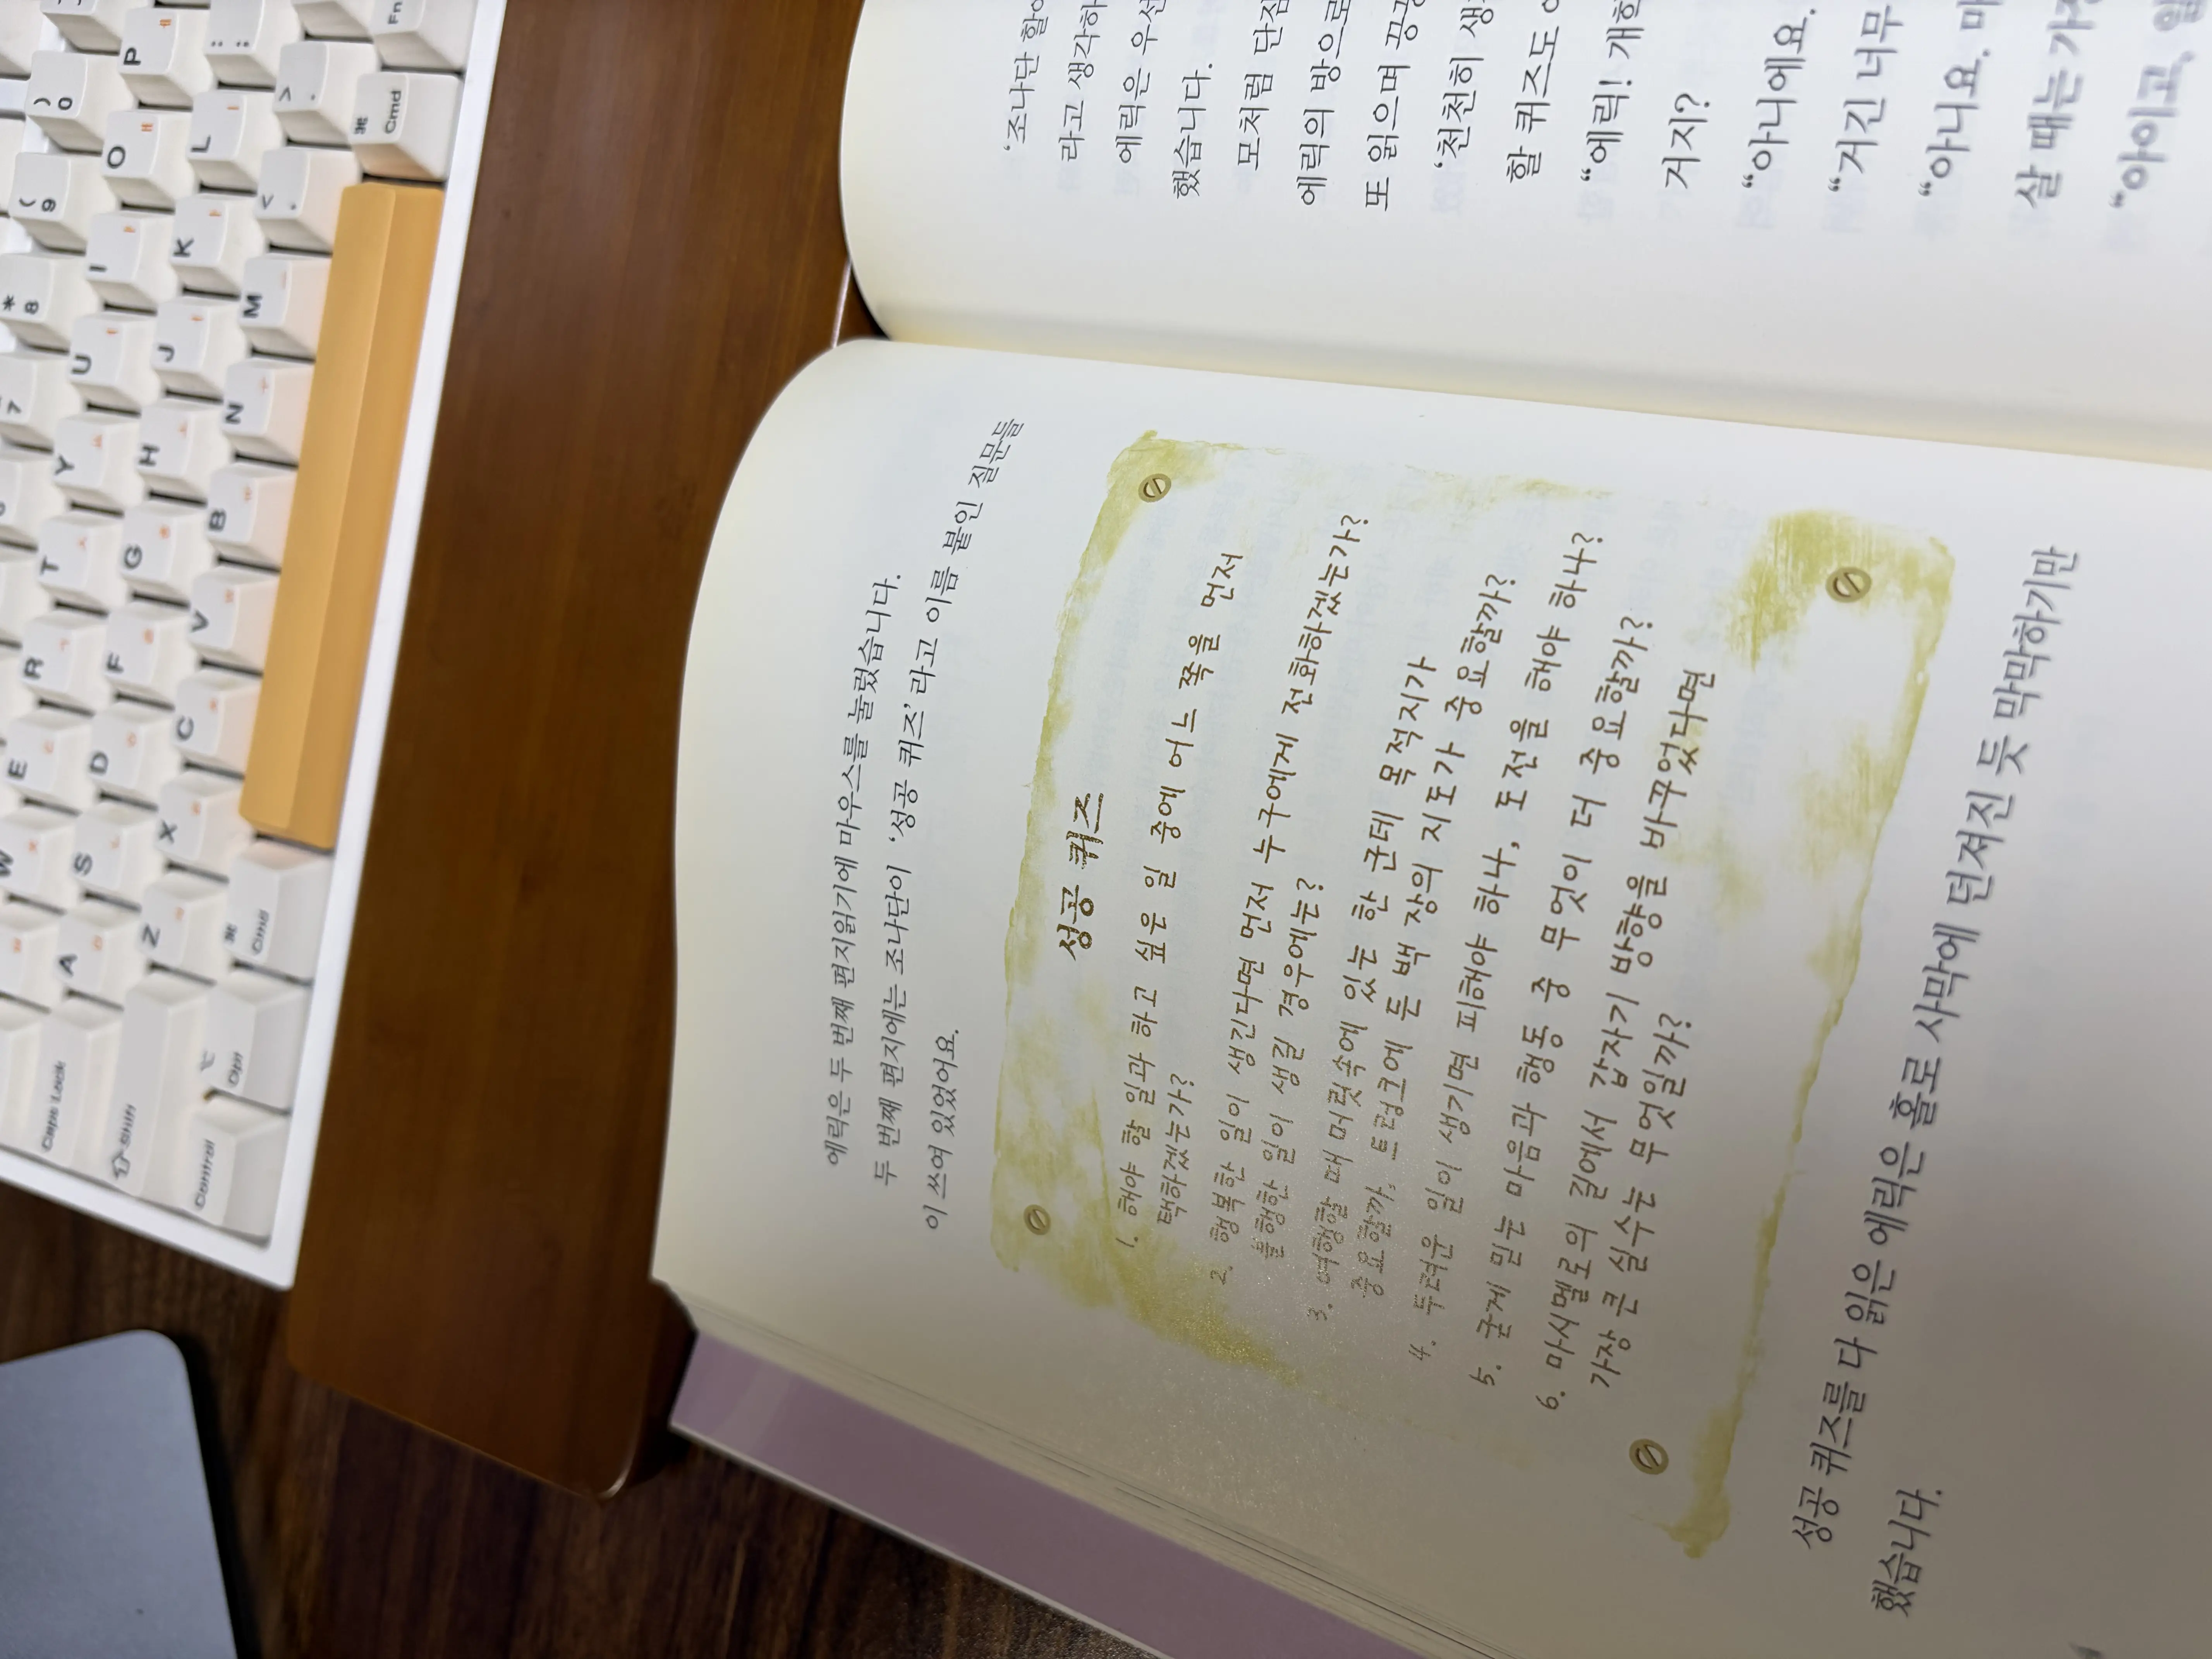 에릭은 두 번째 편지읽기에 마우스를 눌렀습니다.
두 번째 편지에는 조나단이 ‘성공 퀴즈’라고 이름 붙인 질문들
이 쓰여 있었어요.
성공 퀴즈
1. 해야 할 일과 하고 싶은 일 중에 어느 쪽을 먼저
택하겠는가?
2. 행복한 일이 생긴다면 먼저 누구에게 전화하겠는가?
불행한 일이 생길 경우에는?
3. 여행할 때 머릿속에 있는 한 군데 목적지가
중요할까, 트렁크에 든 백 장의 지도가 중요할까?
4. 두려운 일이 생기면 피해야 하나, 도전을 해야 하나?
5. 굳게 믿는 마음과 행동 중 무엇이 더 중요할까?
6. 마시멜로의 길에서 갑자기 방향을 바꾸었다면
가장 큰 실수는 무엇일까?
성공 퀴즈를 다 읽은 에릭은 홀로 사막에 던져진 듯 막막하기만
했습니다.
‘조나단 할아
라고 생각하
에릭은 우선
했습니다.
모처럼 단짐
에릭의 방으로
또 읽으며 끙끙
‘천천히 생
할 퀴즈도
“에릭! 개학
거지?
“아니에요.
“거긴 너무
“아니요. 마
살 때는 가
“아이고, 일
) 0
( 9
* 8
7
P ㅔ
O ㅐ
I ㅑ
U ㅕ
Y ㅛ
T ㅅ
R ㄱ
E ㄷ
W ㅈ
: ;
L ㅣ
K ㅏ
J ㅓ
H ㅗ
G ㅎ
F ㄹ
D ㅇ
S ㄴ
A ㅁ
Caps Lock
> .
< ,
M ㅡ
N ㅜ
B ㅠ
V ㅍ
C ㅊ
X ㅌ
Z ㅋ
Shift
Fn
⌘ Cmd
⌘ Cmd
⌥ Opt
Control